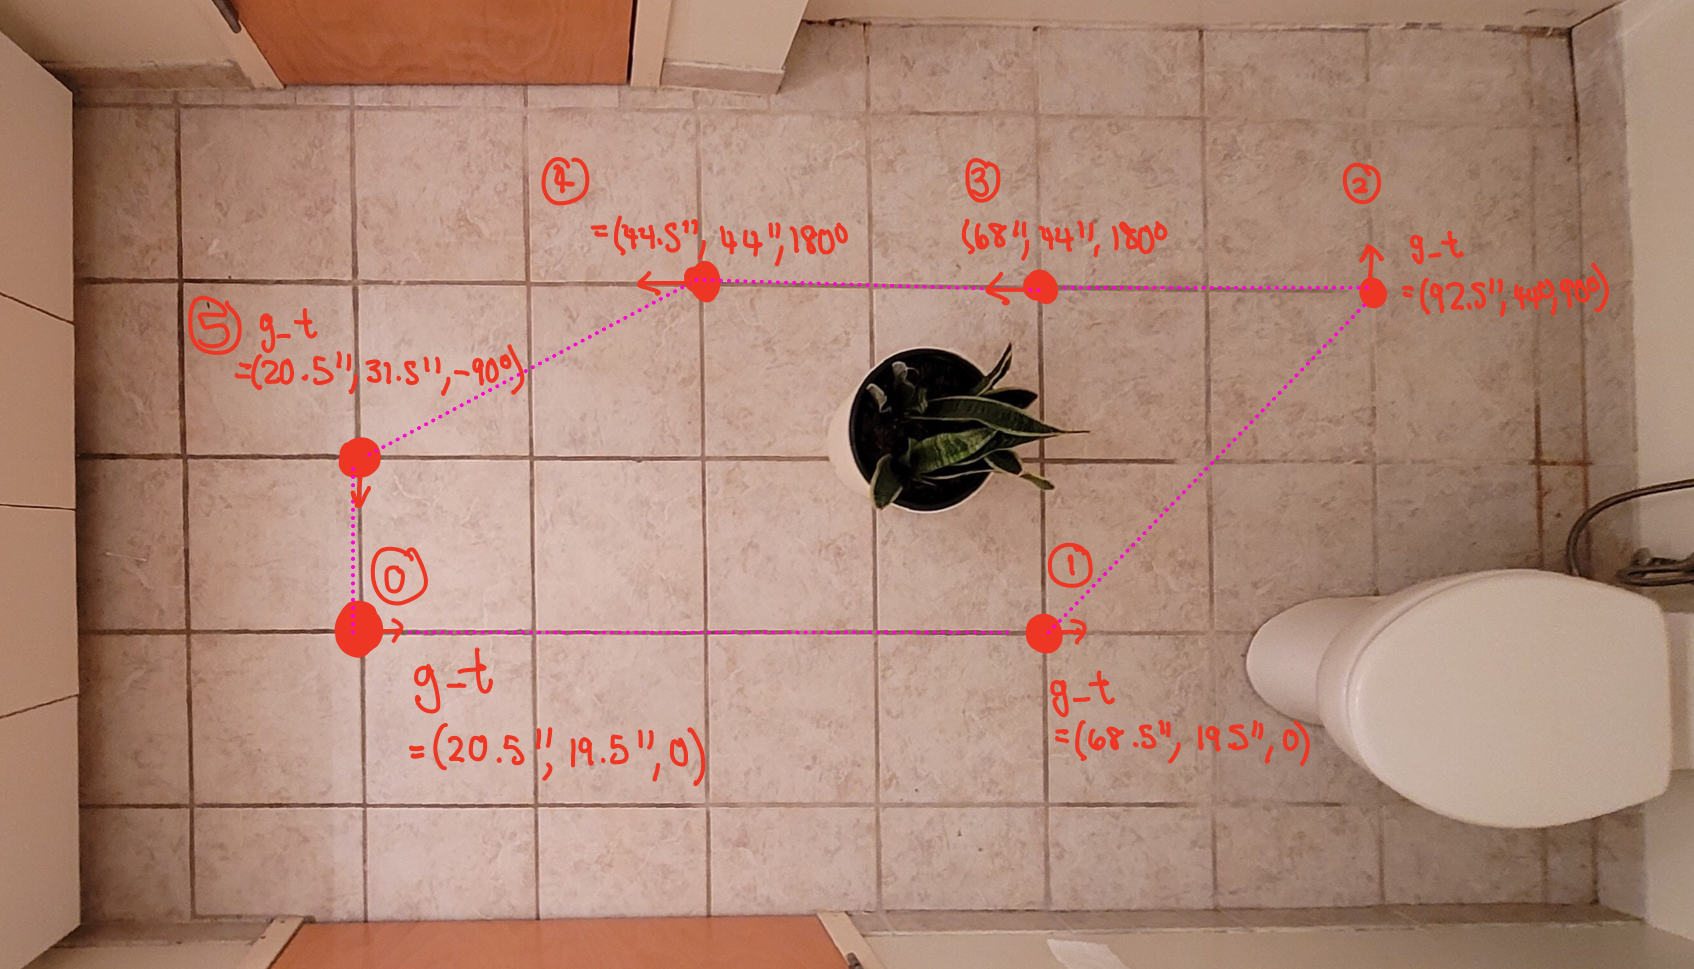 ④
=(44.5", 44", 180°
③
(68", 44", 180°
②
g_t
=(92.5", 44", 90°)
⑤ g_t
=(20.5", 31.5", -90°)
⓪
g_t
=(20.5", 19.5", 0)
①
g_t
=(68.5", 195", 0)